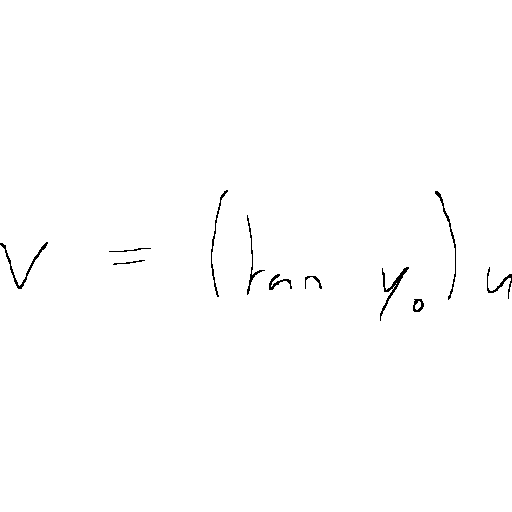 v = (tan y₀) u